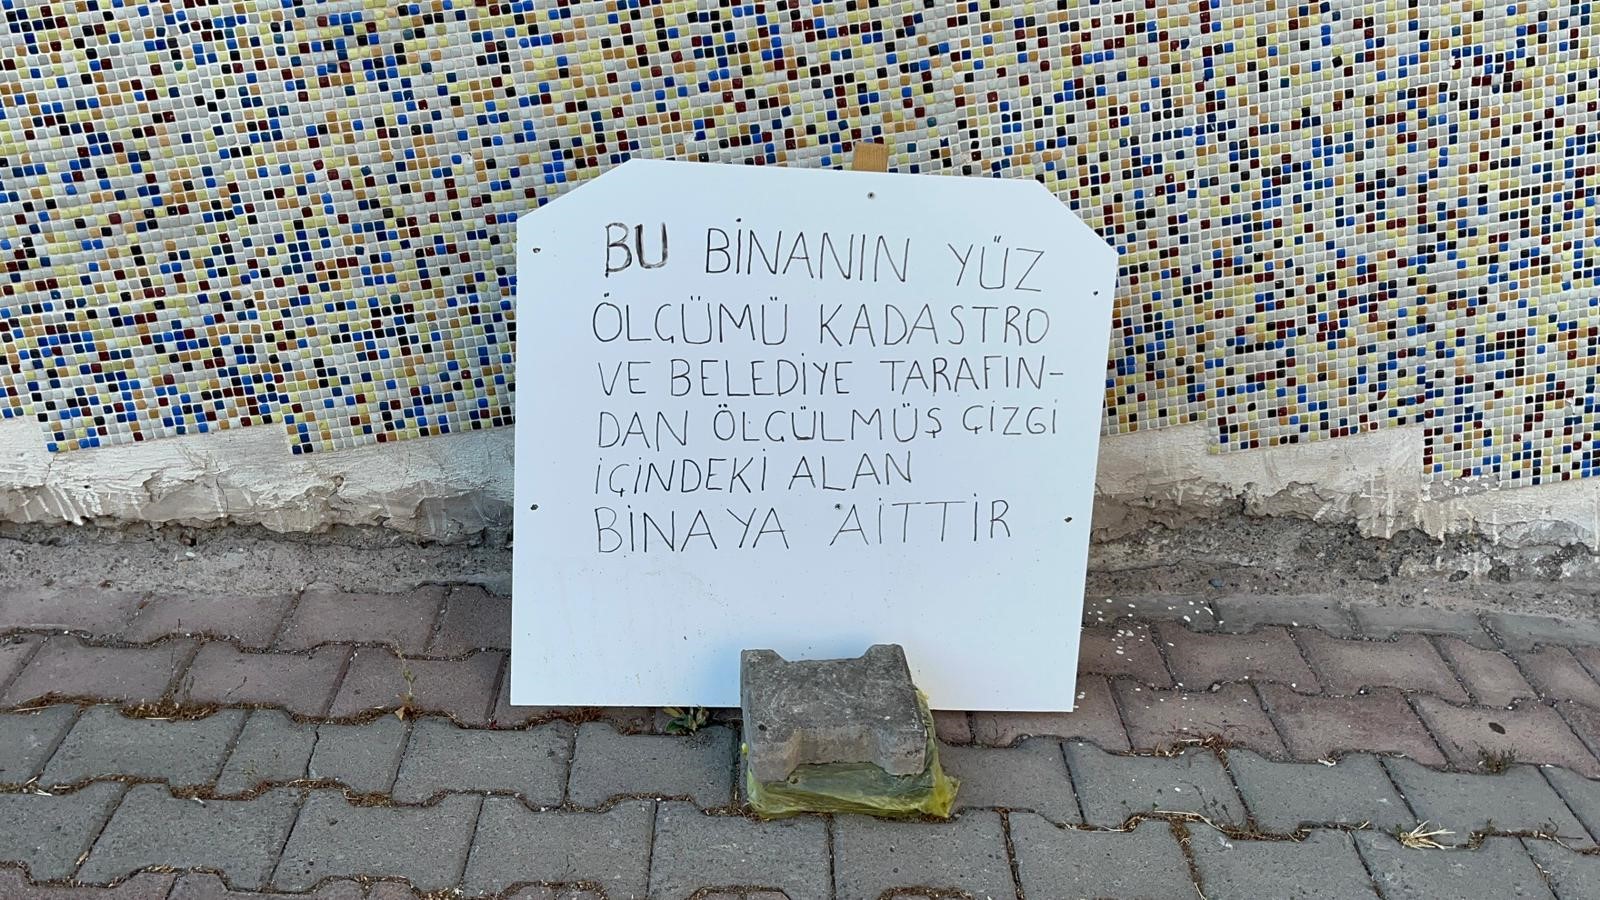 BU BİNANIN YÜZ
ÖLÇÜMÜ KADASTRO
VE BELEDİYE TARAFIN-
DAN ÖLÇÜLMÜŞ ÇİZGİ
İÇİNDEKİ ALAN
BİNAYA AİTTİR